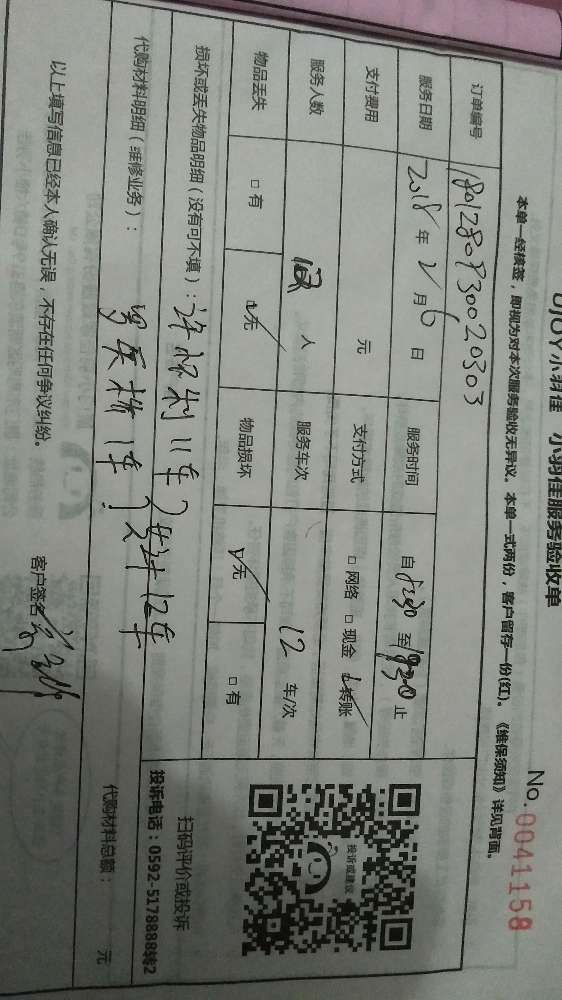 UJOY小羽佳 小羽佳服务验收单
No.0041158
本单一经核签，即视为对本次服务验收无异议。本单一式两份，客户留存一份(红)。《维保须知》详见背面。
订单编号 1801280930020303
服务日期 2018年2月6日 服务时间 自 至 止
支付费用 元 支付方式 □网络 □现金 ☑转账
服务人数 人 服务车次 12 车/次
物品丢失 □有 ☑无 物品损坏 ☑无 □有
损坏或丢失物品明细（没有可不填）： 11车
共计12车
代购材料明细（维修业务）： 1车
代购材料总额： 元
以上填写信息已经本人确认无误，不存在任何争议纠纷。
客户签名
投诉或建议
扫码评价或投诉
投诉电话：0592-5178888转2